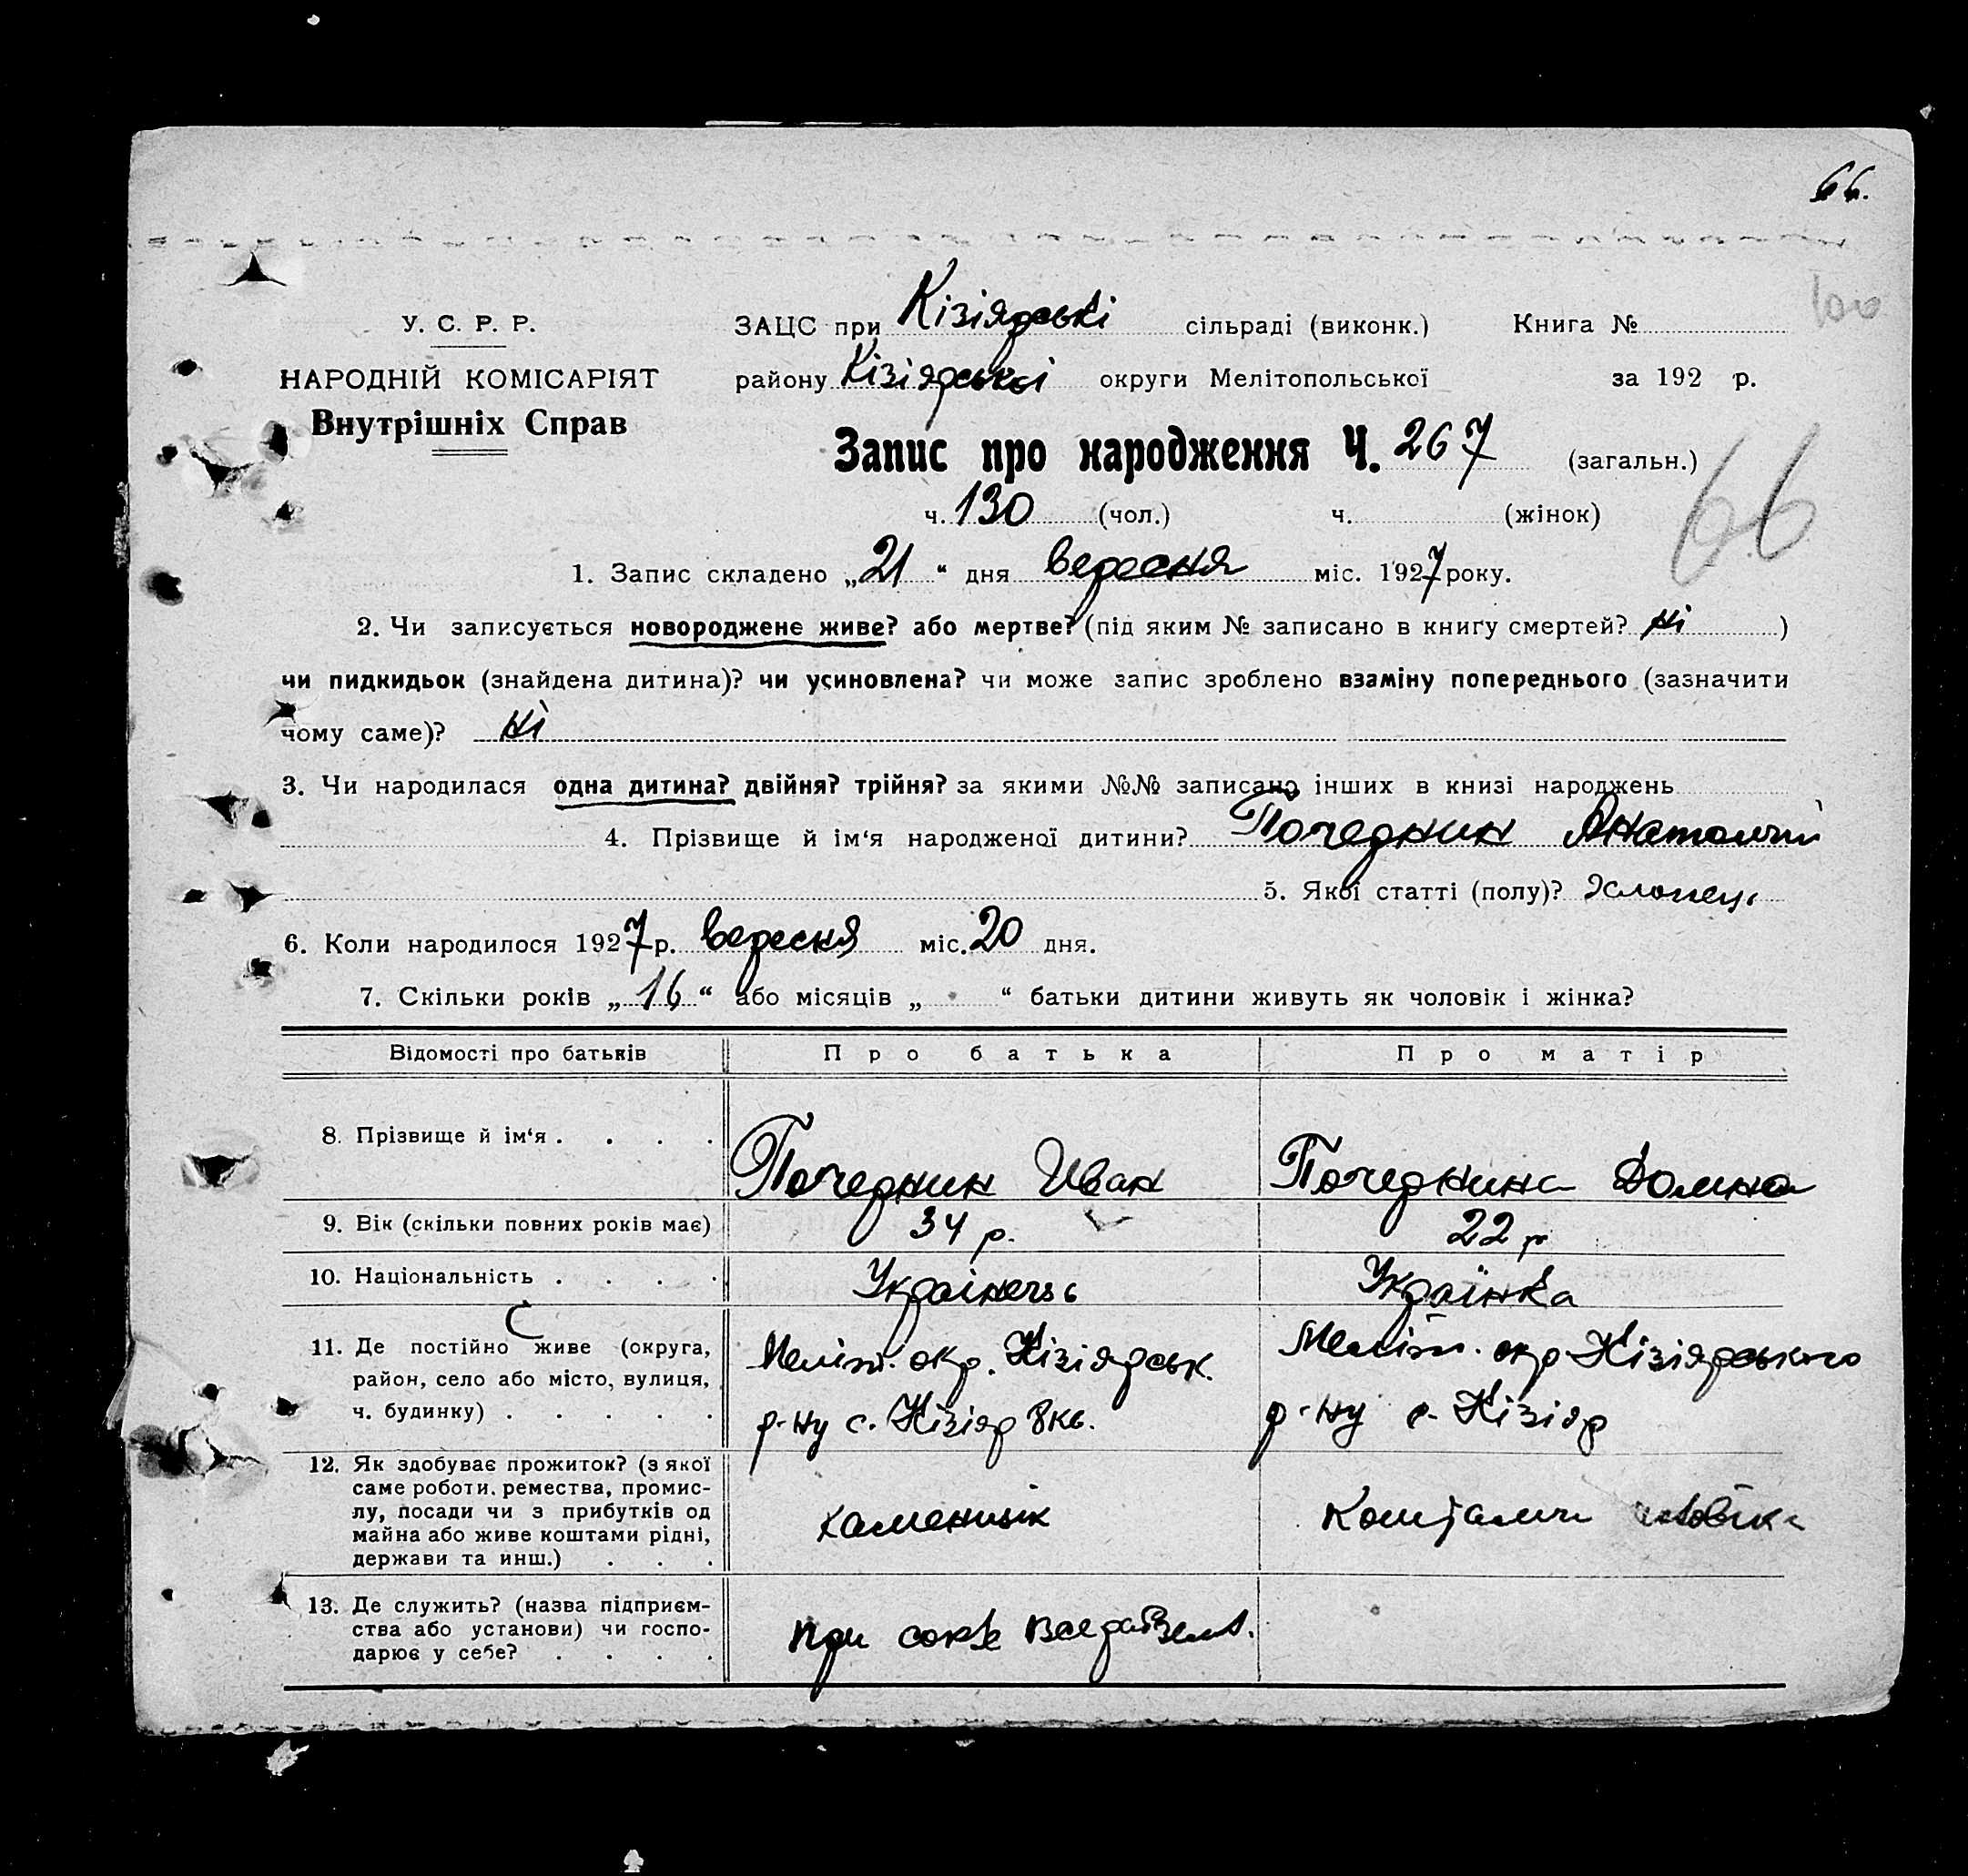 66.
100
У. С. Р. Р.
НАРОДНІЙ КОМІСАРІЯТ
Внутрішніх Справ
ЗАЦС при Кізіярські сільраді (виконк.) Книга №
району Кізіярські округи Мелітопольської за 192 р.
Запис про народження Ч. 267 (загальн.)
66
ч. 130 (чол.) ч. (жінок)
1. Запис складено „21“ дня вересня міс. 1927 року.
2. Чи записується новороджене живе? або мертве? (під яким № записано в книгу смертей? ні )
чи пидкидьок (знайдена дитина)? чи усиновлена? чи може запис зроблено взаміну попереднього (зазначити
чому саме)? ні
3. Чи народилася одна дитина? двійня? трійня? за якими №№ записано інших в книзі народжень
4. Прізвище й ім‘я народженої дитини? Почедник Анатолий
5. Якої статті (полу)? Хлопець
6. Коли народилося 1927 р. вересня міс. 20 дня.
7. Скільки років „16“ або місяців „ “ батьки дитини живуть як чоловік і жінка?
Відомості про батьків Про батька Про матір
8. Прізвище й ім‘я . . . . Почедник Иван Почеднина Домна
9. Вік (скільки повних років має) 34 р. 22 р
10. Національність . . . . Українець Українка
11. Де постійно живе (округа,
район, село або місто, вулиця,
ч. будинку) . . . . .
Меліт. окр. Кізіярськ.
р-ну с. Кізіяр 8 кв.
Меліт. окр Кізіярського
р-ну с. Кізіяр
12. Як здобуває прожиток? (з якої
саме роботи, ремества, промис-
лу, посади чи з прибутків од
майна або живе коштами рідні,
держави та инш.) . . .
каменщік
Коштами
13. Де служить? (назва підприєм-
ства або установи) чи госпо-
дарює у себе? . . . .
при союзе